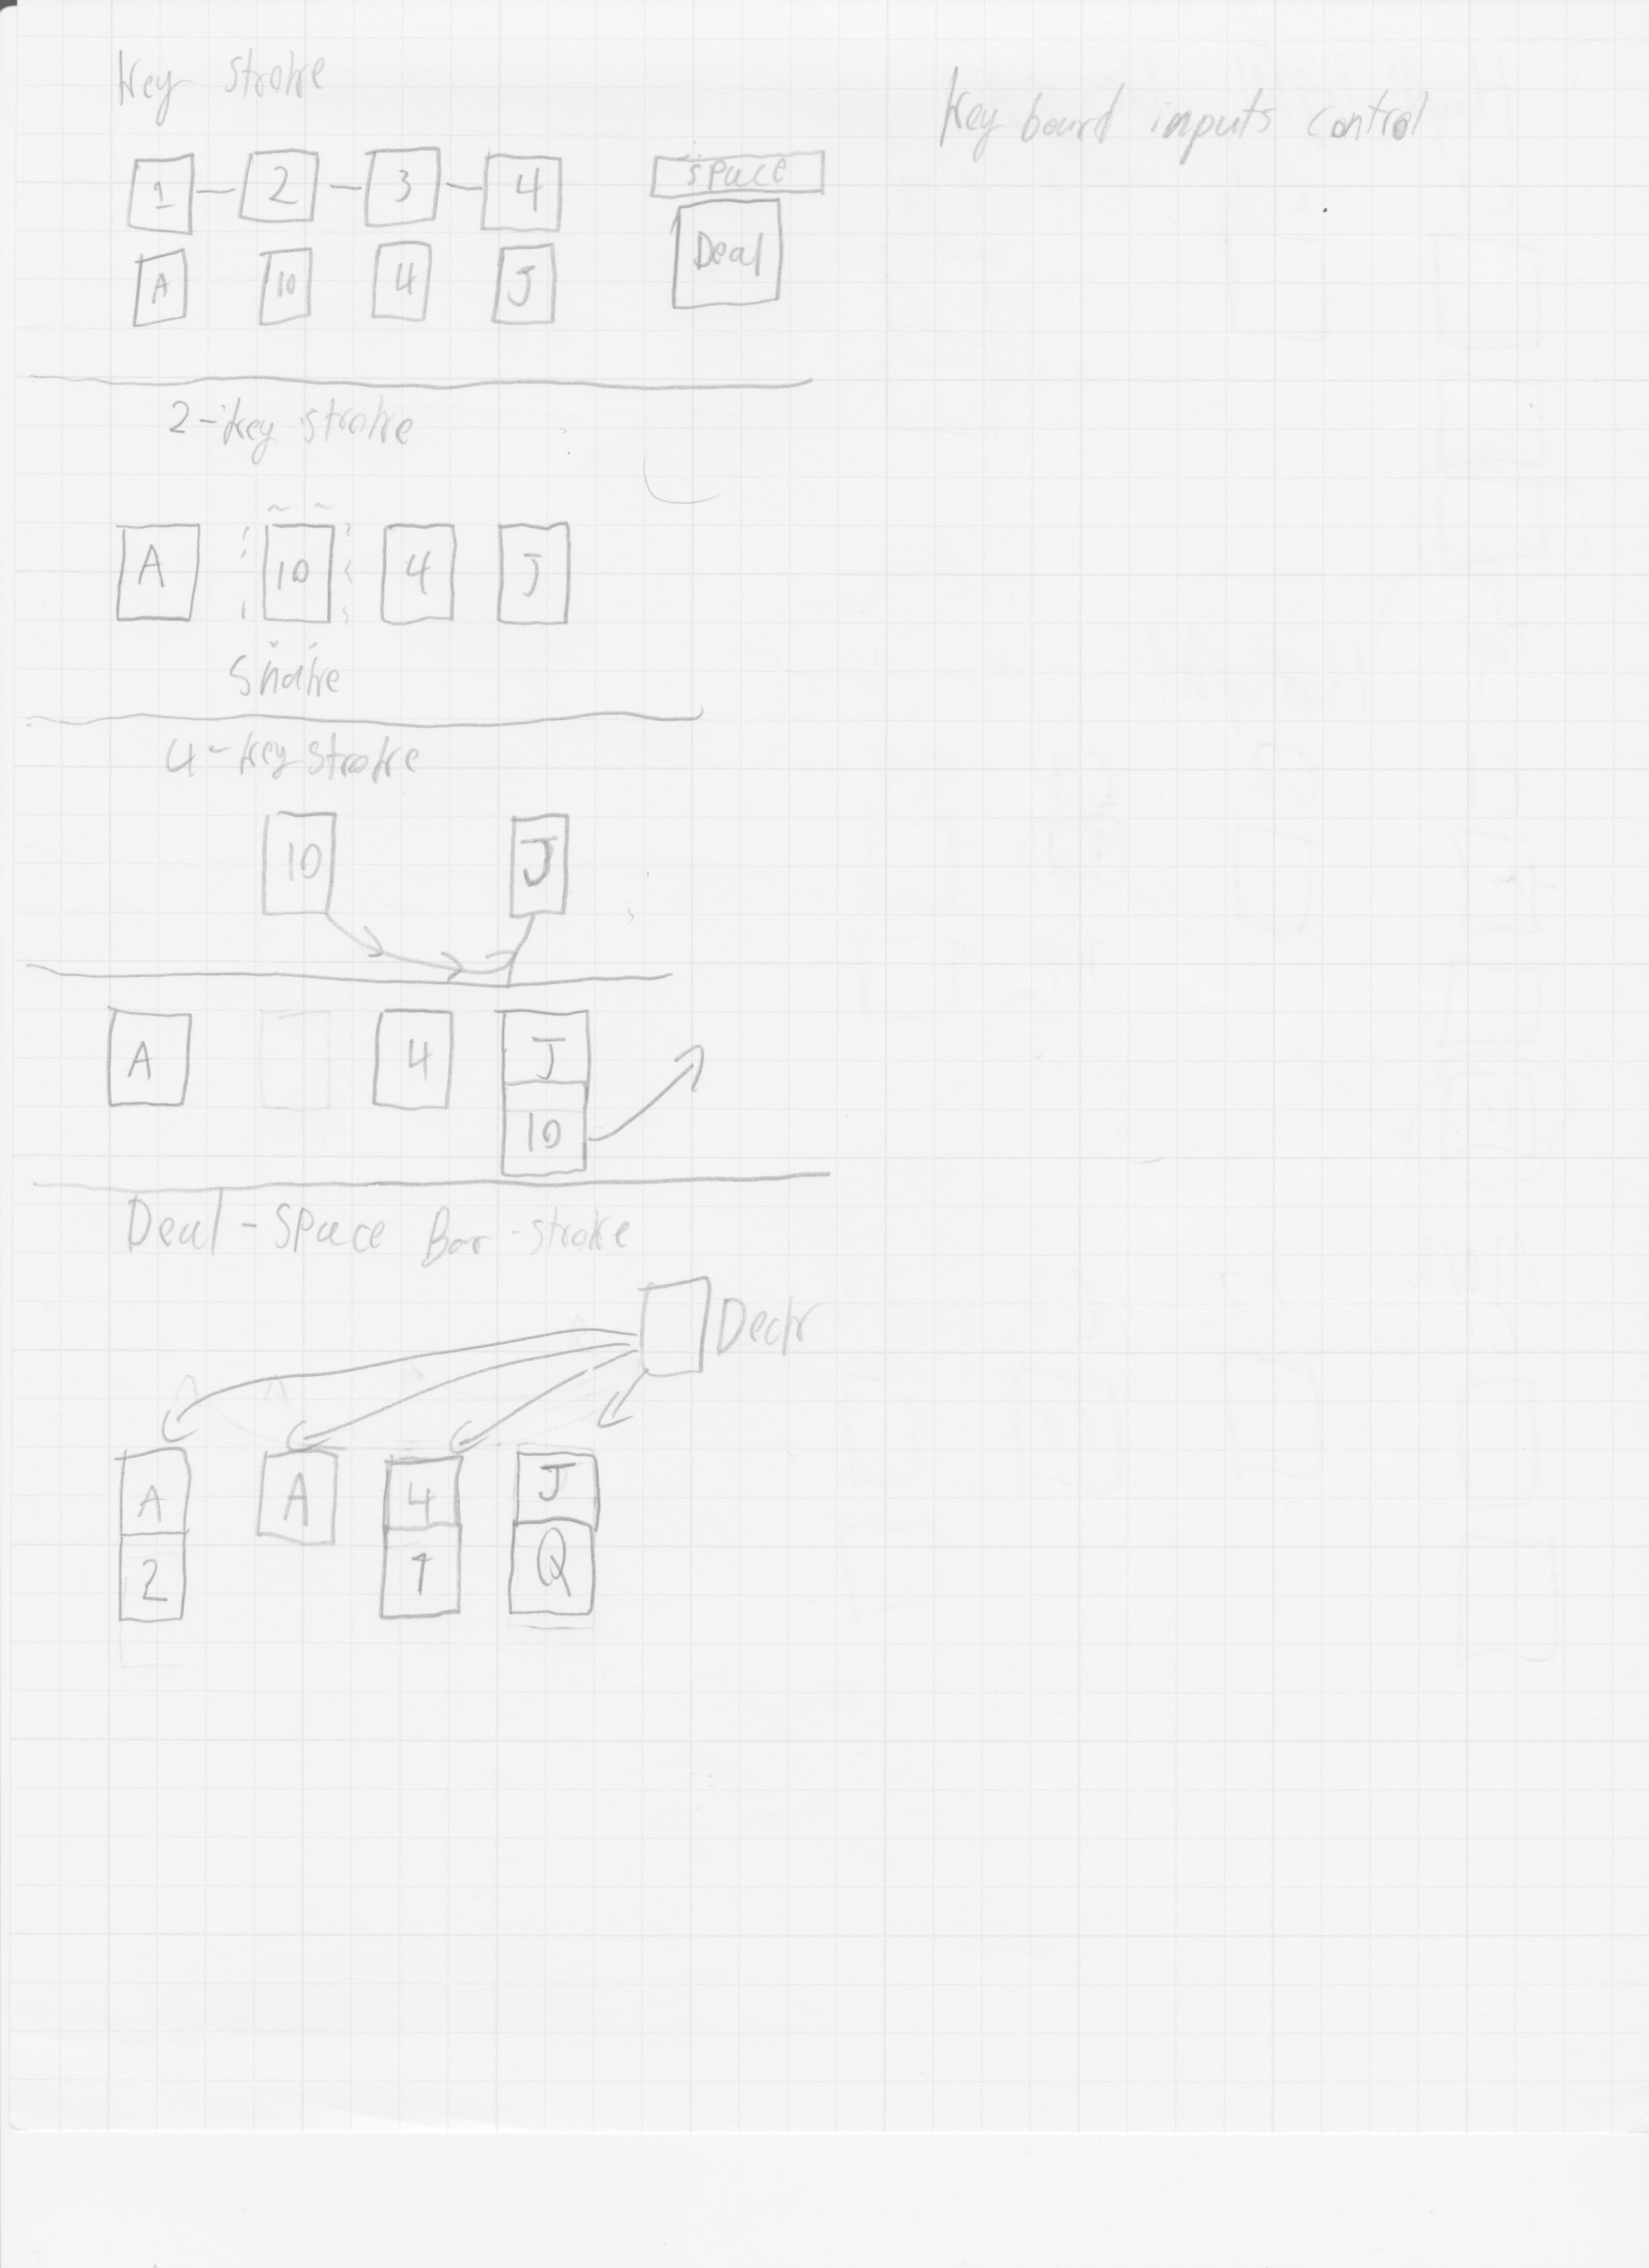 Key stroke
Key board inputs control
1 - 2 - 3 - 4
space
A 10 4 J
Deal
2-key stroke
A 10 4 J
Shake
4-key stroke
10 J
A 4 J
10
Deal-Space Bar-stroke
Deck
A A 4 J
2 Q